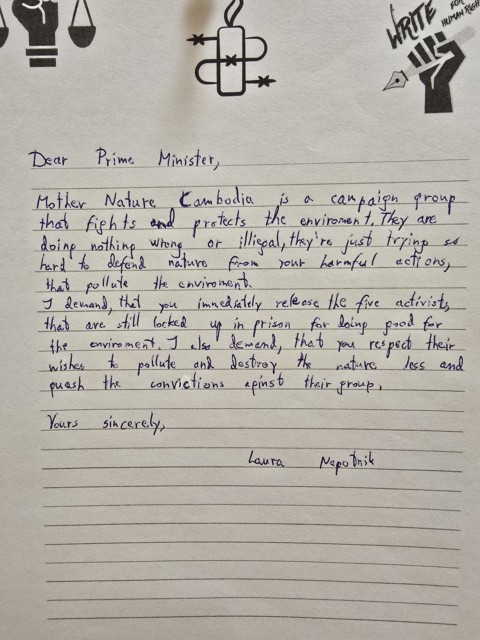 WRITE FOR
HUMAN RIGHTS
Dear Prime Minister,
Mother Nature Cambodia is a campaign group
that fights and protects the enviroment. They are
doing nothing wrong or illegal, they're just trying so
hard to defend nature from your harmful actions,
that pollute the enviroment.
I demand, that you immediately release the five activists,
that are still locked up in prison for doing good for
the enviroment. I also demand, that you respect their
wishes to pollute and destroy the nature less and
quash the convictions aginst their group.
Yours sincerely,
Laura Napotnik